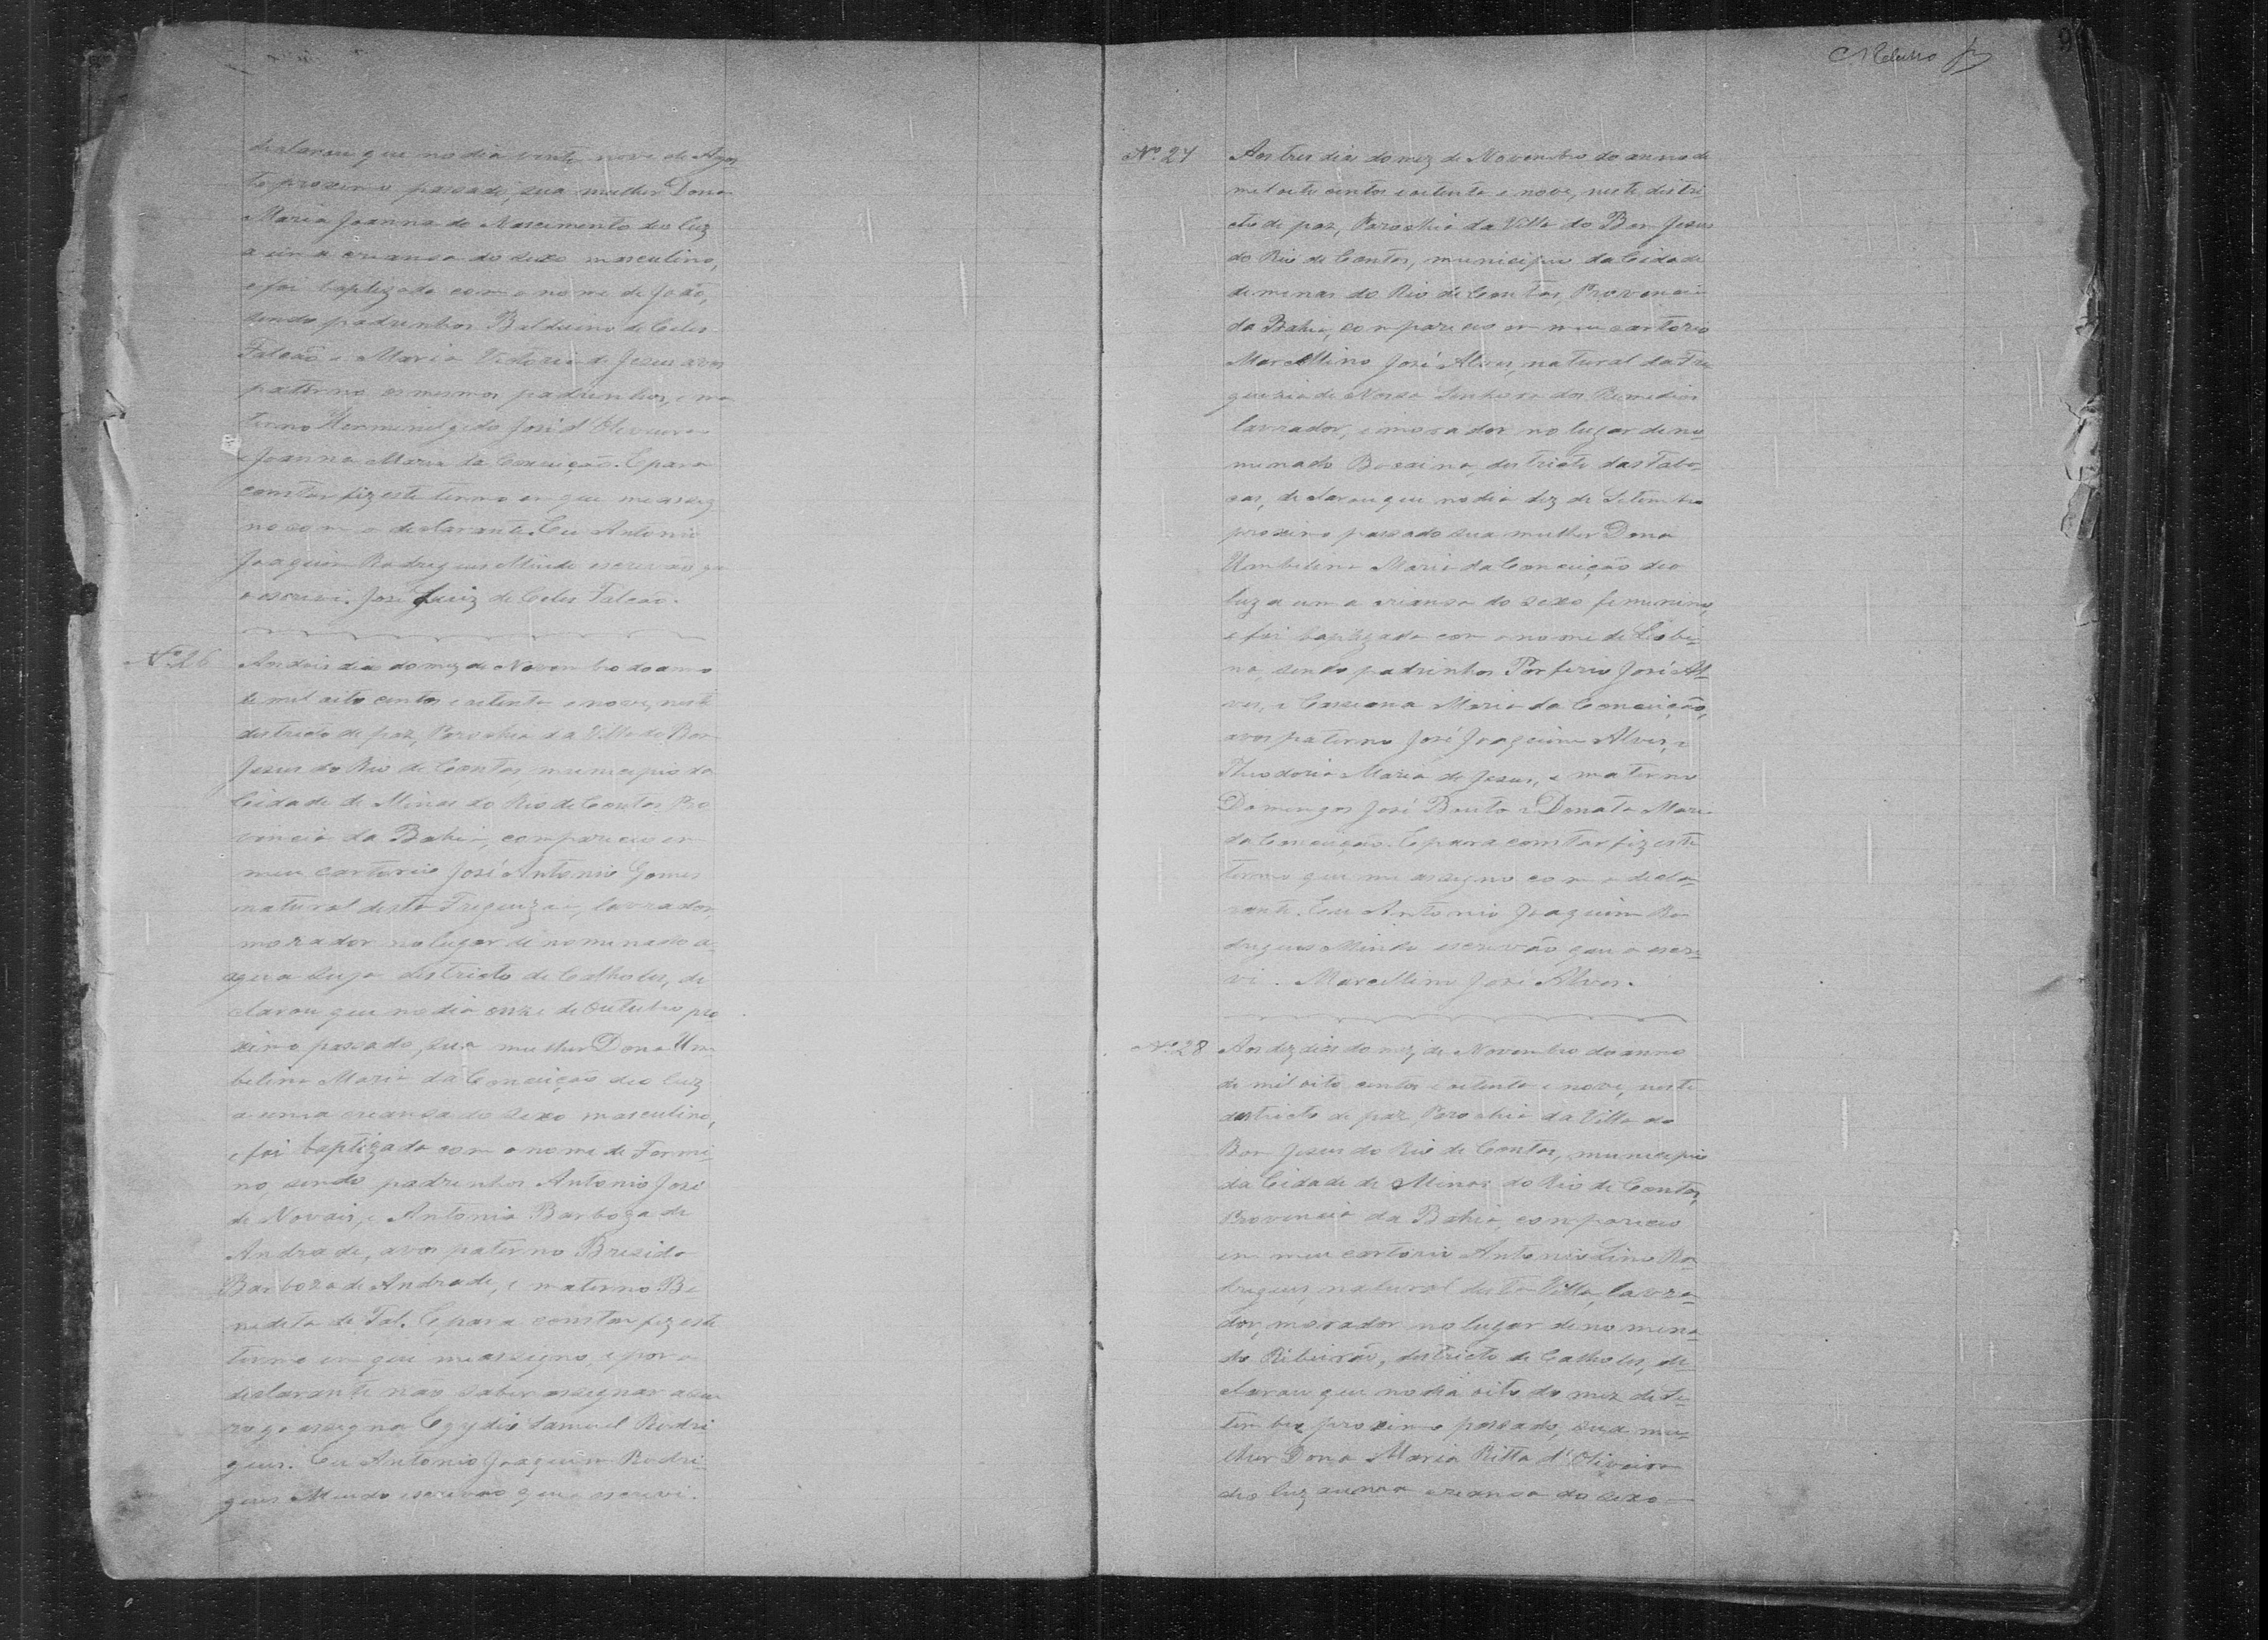 declarou que no dia vinte nove de Agos
to proximo passado, sua mulher Dona
Maria Joanna do Nascimento deo luz
a uma criansa do sexo masculino,
e foi baptizado com o nome de João,
sendo padrinhos Balduino de Celes
Falcão e Maria Victoria de Jesus avos
paterno os mesmos padrinhos, e ma
terno Hermenilgedo José d'Oliveira
e Joanna Maria da Conceição. E para
constar fiz este termo em que me assig
no com o declarante. Eu Antonio
Joaquim Rodrigues escrivão que
o escrevi. José Luiz de Celes Falcão.
Nº 26
Aos dois dias do mez de Novembro do anno
de mil oito centos e oitenta e nove, neste
districto de paz, Parochia da Villa do Bom
Jesus do Rio de Contas, municipio da
Cidade de Minas do Rio de Contas Pro
vincia da Bahia, compareceo em
meu cartorio José Antonio Gomes
natural desta Freguezia, lavrador
morador no lugar denominado a
agua suja districto de Catholes, de
clarou que no dia onze de Outubro pro
ximo passado, sua mulher Dona Um
belina Maria da Conceição deo luz
a uma creansa do sexo masculino,
e foi baptizado com o nome de Formi
no, sendo padrinhos Antonio José
de Novais, e Antonia Barboza de
Andrade, avos paterno Brisida
Barboza de Andrade, e materno Be
nedita de Tal. E para constar fiz este
termo em que me assigno, e por o
declarante não saber assignar a seu
rogo assigna Egydio Samuel Rodri
gues. Eu Antonio Joaquim Rodri-
gues escrivão que o escrevi.
Nº 27
Aos tres dias do mez de Novembro do anno de
mil oito centos e oitenta e nove, neste distri
cto de paz, Parochia da Villa do Bom Jesus
do Rio de Contas, municipio da Cidade
de minas do Rio de Contas, Provincia
da Bahia, compareceo em meu cartorio
Marcellino José Alves, natural da Fre
guezia de Nossa Senhora dos Remedios
lavrador, e morador no lugar deno
minado Bocaina, districto das Tabo
cas, declarou que no dia dez de Setembro
proximo passado sua mulher Dona
Umbelina Maria da Conceição deo
luz a uma criansa do sexo feminino,
e foi baptizada com o nome de
sendo padrinhos Porferio José Al
ves, e Cassiana Maria da Conceição,
avos paterno José Joaquim Alves, e
Theodoria Maria de Jesus, e materno
Domingos José Bento e Donata Maria
da Conceição. E para constar fiz este
termo que me assigno com o decla
rante. Eu Antonio Joaquim Ro
drigues escrivão que o escre
vi. Marcellino José Alves.
Nº 28
Aos dez dias do mez de Novembro do anno
de mil oito centos e oitenta e nove, neste
districto de paz, Parochia da Villa do
Bom Jesus do Rio de Contas, municipio
da Cidade de Minas do Rio de Contas,
Provincia da Bahia, compareceo
em meu cartorio Antonio Lino Ro
drigues, natural desta Villa, lavra
dor, morador no lugar denomina
do Ribeirão, districto de Catholes, de
clarou que no dia oito do mez de Se
tembro proximo passado, sua mu
lher Dona Maria Ritta d'Oliveira
deo luz a uma creansa do sexo